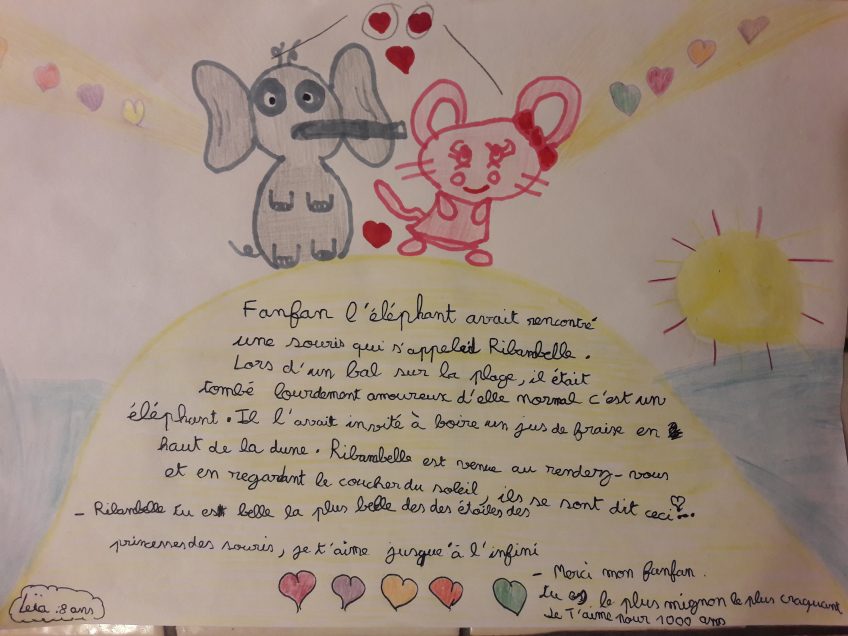 Fanfan l'éléphant avait rencontré
une souris qui s'appeleid Ribambelle.
Lors d'un bal sur la plage, il était
tombé lourdement amoureux d'elle normal c'est un
éléphant. Il l'avait invité à boire un jus de fraise en
haut de la dune. Ribambelle est venue au rendez-vous
et en regardant le coucher du soleil, ils se sont dit ceci...
- Ribambelle tu es belle la plus belle des des étoiles des
princesses des souris, je t'aime jusque à l'infini
- Merci mon fanfan.
tu es le plus mignon le plus craquant
Je T'aime pour 1000 ans
Leïa : 8 ans